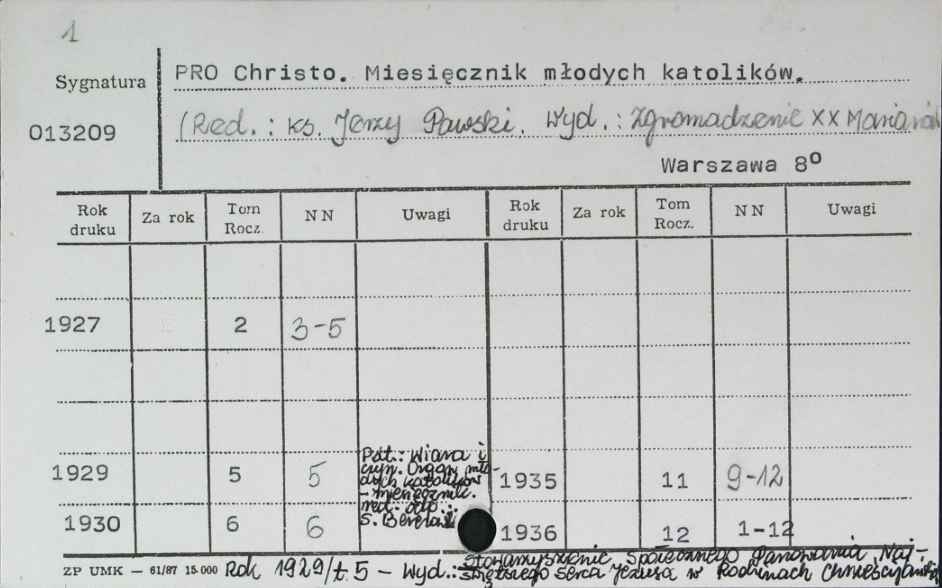 1
Sygnatura
PRO Christo. Miesięcznik młodych katolików.
013209
(Red.: ks. Jerzy Pawski. Wyd.: Zgromadzenie XX Marianów
Warszawa 8º
Rok druku Za rok Tom Rocz. NN Uwagi Rok druku Za rok Tom Rocz. NN Uwagi
1927 2 3-5
Pdt.: Wiara i
czyn. Organ mło-
dych katolików
- miesięcznik.
red. odp.:
S.
1929 5 5 1935 11 9-12
1930 6 6 1936 12 1-12
ZP UMK — 61/87 15.000 Rok 1929/t. 5 - Wyd.: Stowarzyszenie Społecznego Panowania Naj-
świętszego Serca Jezusa w Rodzinach Chrześcijańskich